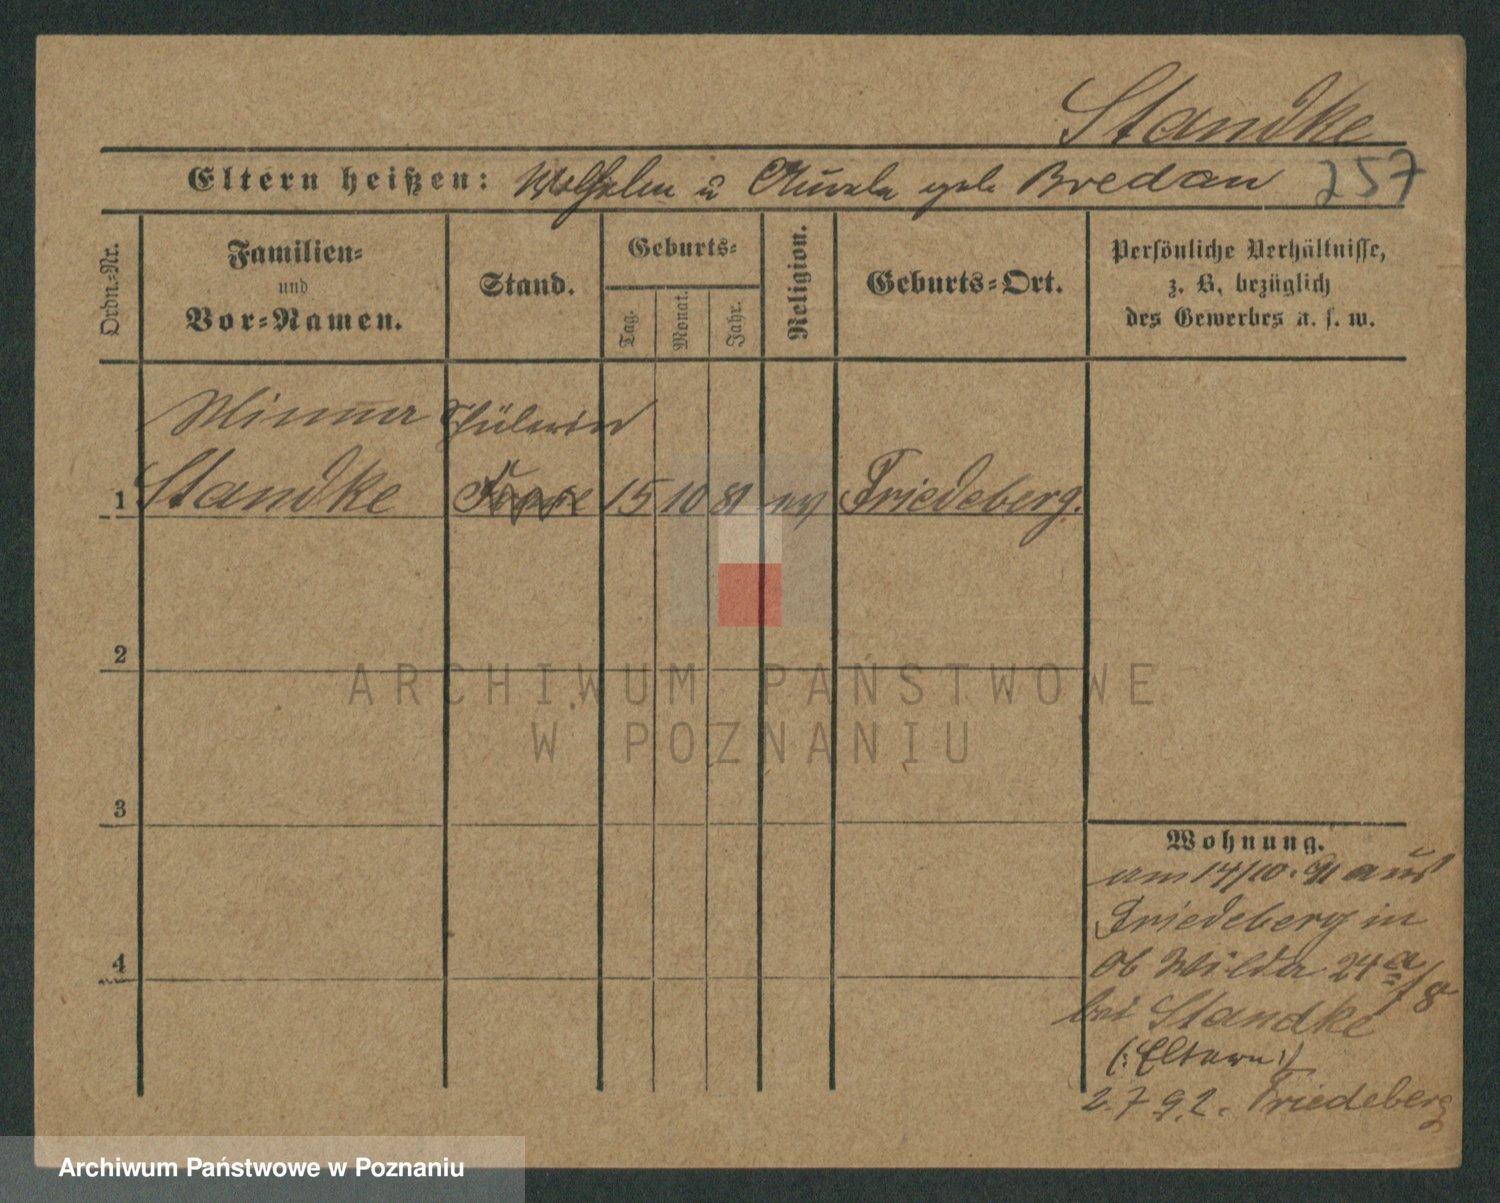 Standke
Eltern heißen: Wilhelm u Amala geb. Bredau 257
Ordn.-Nr.
Familien-
und
Vor-Namen.
Stand.
Geburts-
Tag.
Monat.
Jahr.
Religion.
Geburts-Ort.
Persönliche Verhältnisse,
z. B. bezüglich
des Gewerbes u. s. w.
Minna Schülerin
1 Standke 15 10 81 ev Friedeberg.
2
3
4
Wohnung.
am 14/10. 91 aus
Friedeberg in
Ob Wilda 24 a/8
bei Standke
(: Eltern :)
2.7.92. Friedeberg
ARCHIWUM PAŃSTWOWE
W POZNANIU
Archiwum Państwowe w Poznaniu